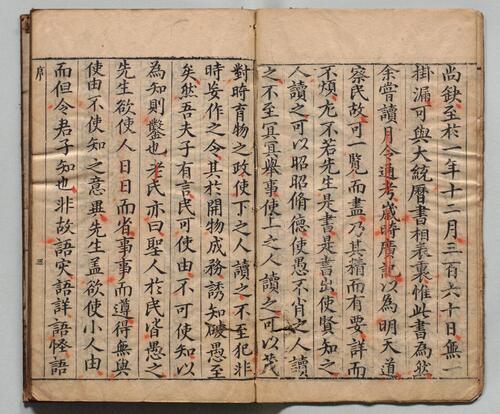 尚鈌至於一年十二月三百六十日無一
掛漏可與大統曆書相表裏惟此書為然
余嘗讀月令通考歲時廣記以為明天道
察民故可一覽而盡乃其猜而有要詳而
不煩尤不若先生是書是書出使賢知之
人讀之可以昭昭脩德使愚不肖之人讀
之不至冥冥舉事使上之人讀之可以茂
對時育物之政使下之人讀之不至犯非
時妄作之令其於開物成務誘知破愚至
矣然吾夫子有言民可使由不可使知以
為知則鑿也老氏亦曰聖人於民皆愚之
先生欲使人日日而省事事而遵得無與
使由不使知之意異先生盖欲使小人由
而但令君子知也非故語灾語詳語怪語
序
三